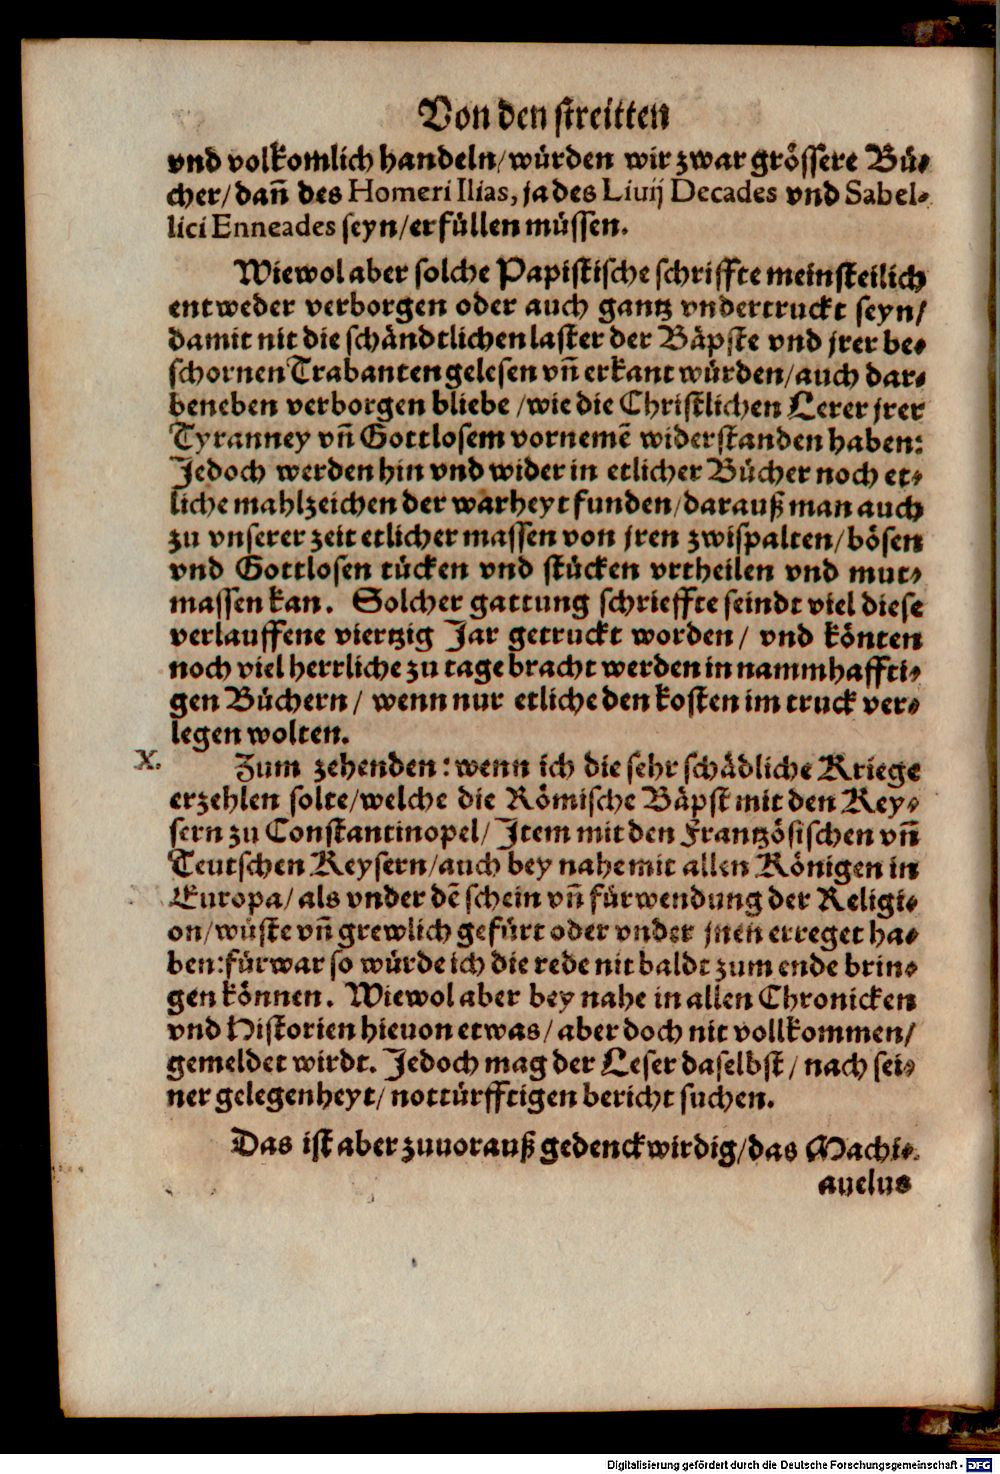 Von den streitten
vnd volkomlich handeln/ würden wir zwar grössere Bü-
cher/ dañ des Homeri Ilias, ja des Liuij Decades vnd Sabel-
lici Enneades seyn/ erfüllen müssen.
Wiewol aber solche Papistische schriffte meinsteilich
entweder verborgen oder auch gantz vndertruckt seyn/
damit nit die schändtlichen laster der Bäpste vnd jrer be-
schornen Trabanten gelesen vñ erkant würden/ auch dar-
beneben verborgen bliebe/ wie die Christlichen Lerer jrer
Tyranney vñ Gottlosem vornemẽ widerstanden haben:
Jedoch werden hin vnd wider in etlicher Bücher noch et-
liche mahlzeichen der warheyt funden/ darauß man auch
zu vnserer zeit etlicher massen von jren zwispalten/ bösen
vnd Gottlosen tücken vnd stücken vrtheilen vnd mut-
massen kan. Solcher gattung schrieffte seindt viel diese
verlauffene viertzig Jar getruckt worden/ vnd könten
noch viel herrliche zu tage bracht werden in nammhaffti-
gen Büchern/ wenn nur etliche den kosten im truck ver-
legen wolten.
X. Zum zehenden: wenn ich die sehr schädliche Kriege
erzehlen solte/ welche die Römische Bäpst mit den Key-
sern zu Constantinopel/ Item mit den Frantzösischen vñ
Teutschen Keysern/ auch bey nahe mit allen Königen in
Europa/ als vnder dẽ schein vñ fürwendung der Religi-
on/ wüste vñ grewlich gefürt oder vnder jnen erreget ha-
ben: fürwar so würde ich die rede nit baldt zum ende brin-
gen können. Wiewol aber bey nahe in allen Chronicken
vnd Historien hieuon etwas/ aber doch nit vollkommen/
gemeldet wirdt. Jedoch mag der Leser daselbst/ nach sei-
ner gelegenheyt/ nottürfftigen bericht suchen.
Das ist aber zuuorauß gedenckwirdig/ das Machi-
auelus
Digitalisierung gefördert durch die Deutsche Forschungsgemeinschaft - DFG